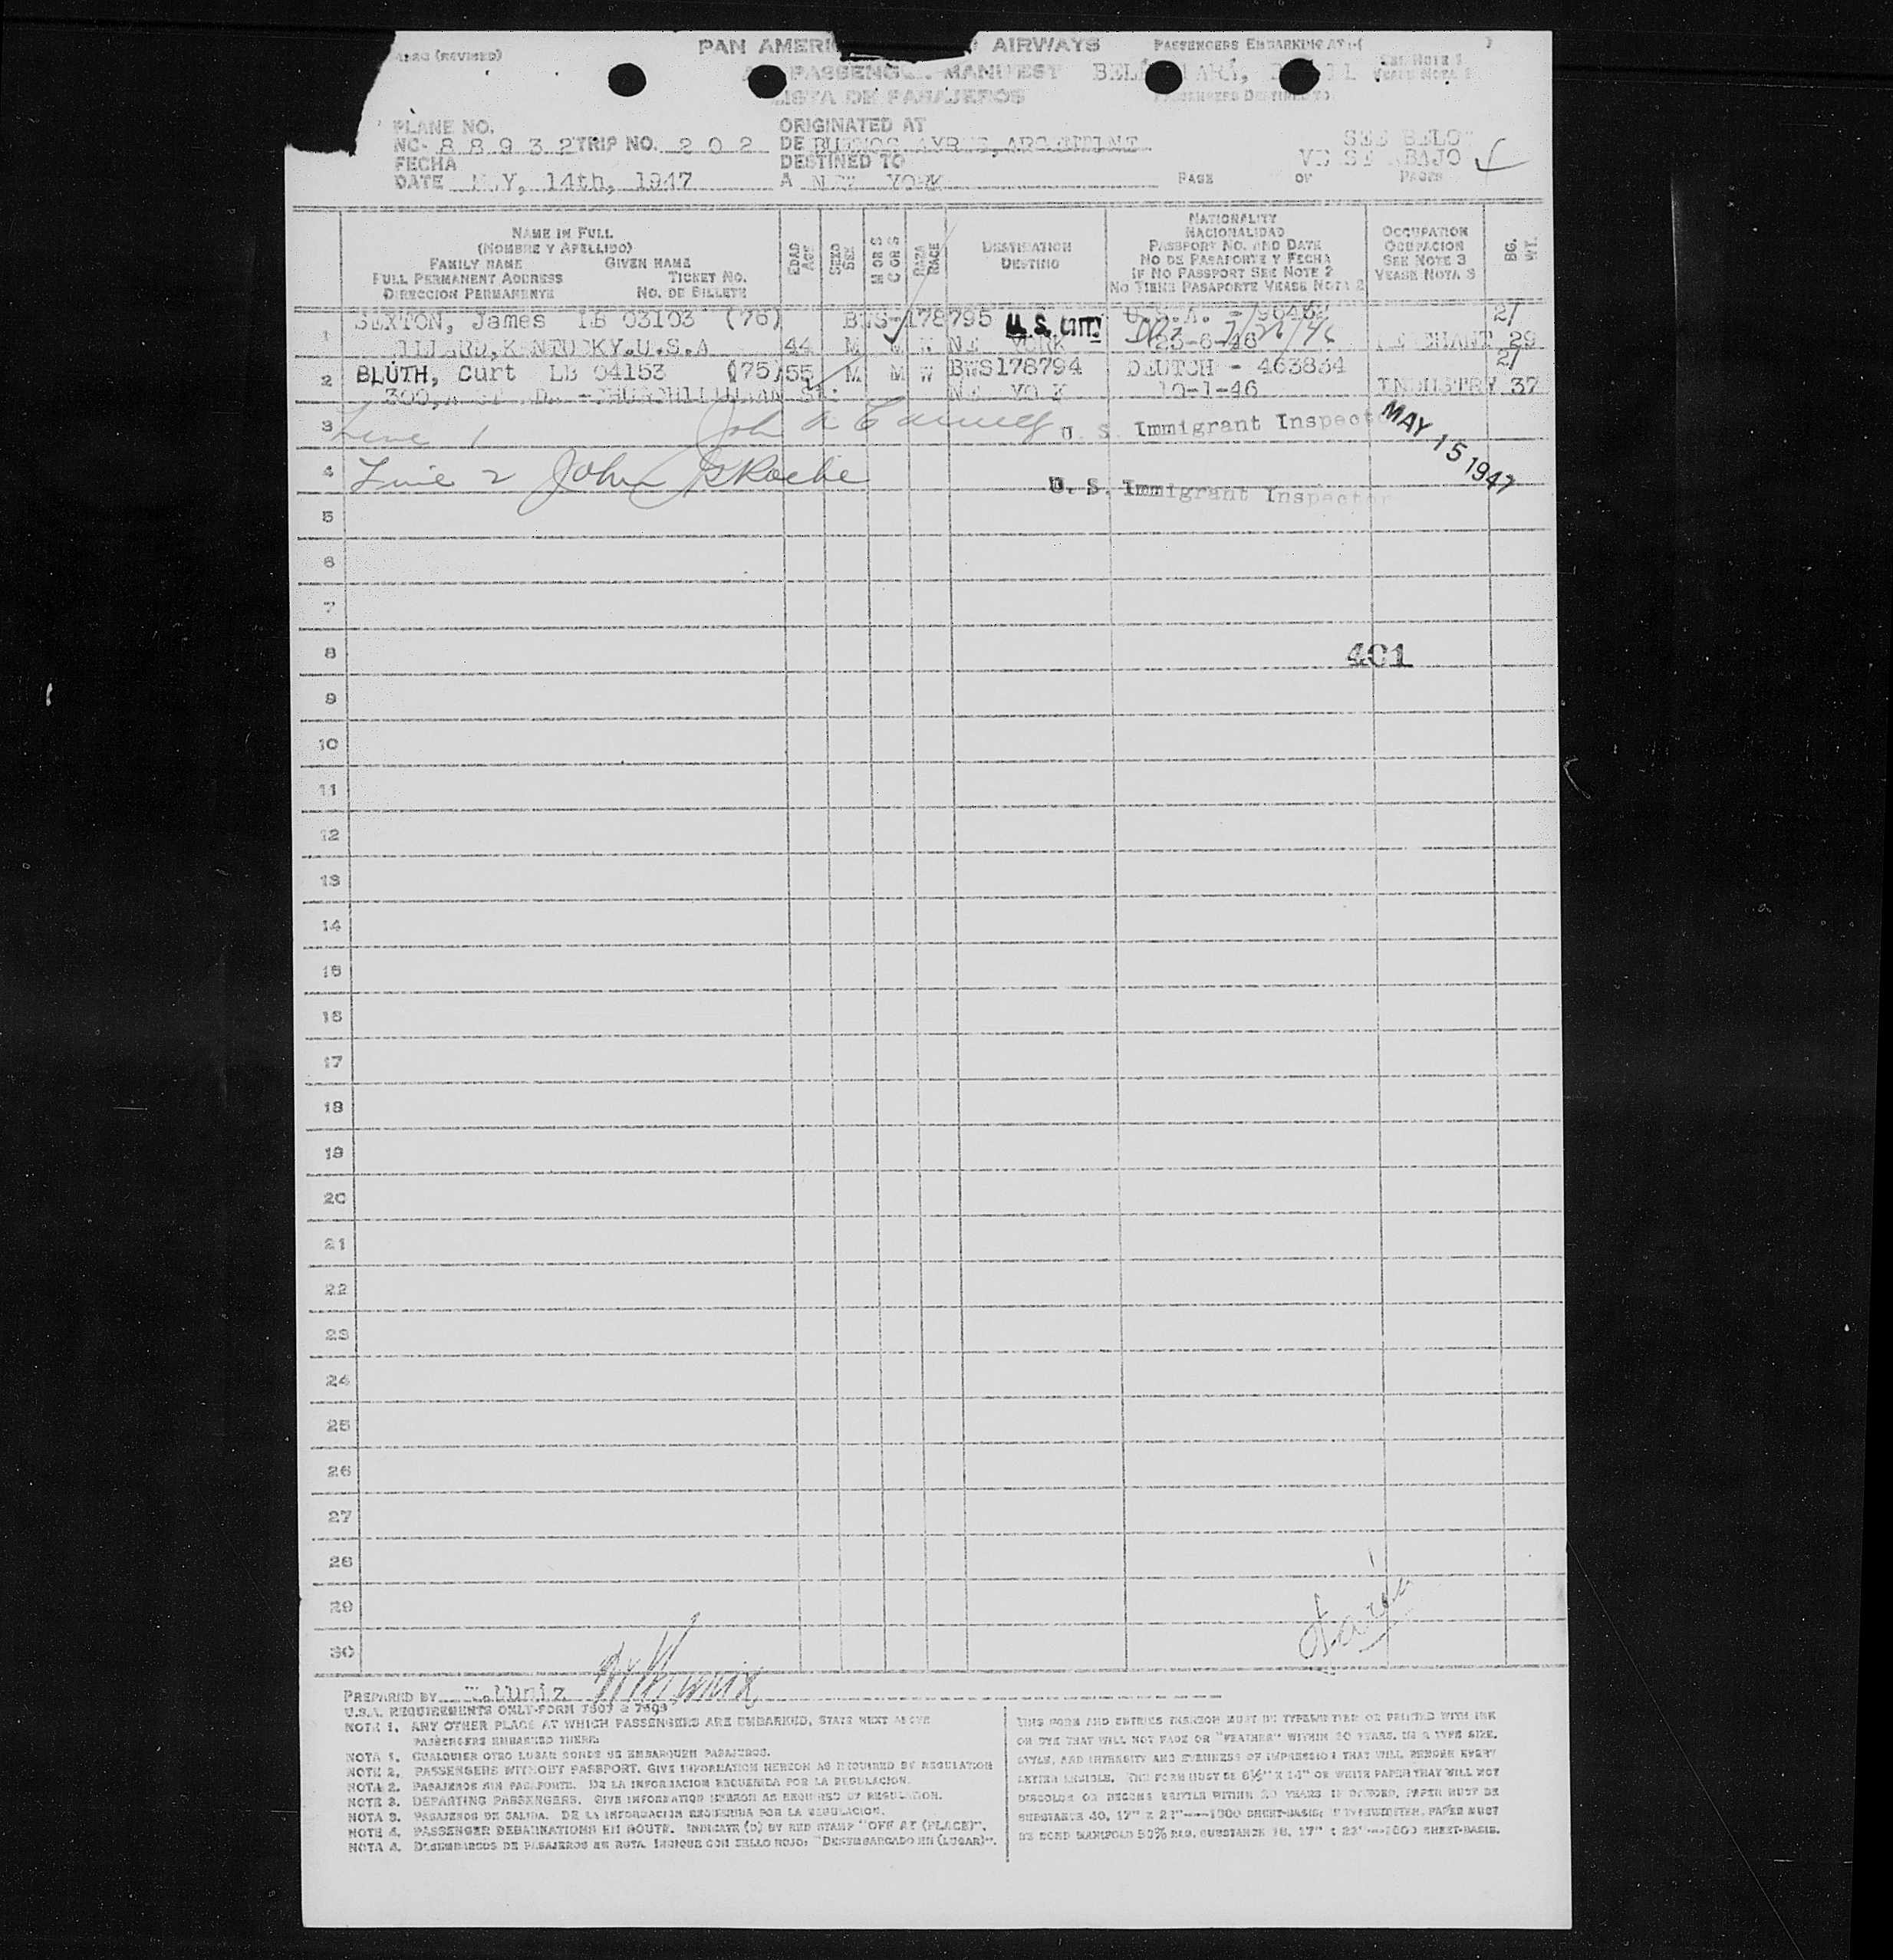 (REVISED)
PAN AMERI AIRWAYS PASSENGERS EMBARKING AT:-( )
PASSENGER MANIFEST BELÉ ARÁ, SEE NOTE 1
LISTA DE PASAJEROS VEASE NOTA 1
PASSENGERS DESTINED TO
PLANE NO. ORIGINATED AT
NC- 8 8 9 3 2 TRIP NO. 2 0 2 DE BUENOS AYRES, ARGENTINE SEE BELO
FECHA DESTINED TO VE SE ABAJO
DATE M Y, 14th, 1947 A NEW YORK PAGE OF PAGES
NAME IN FULL
(NOMBRE Y APELLIDO)
FAMILY NAME GIVEN NAME
FULL PERMANENT ADDRESS TICKET NO.
DIRECCION PERMANENTE NO. DE BILLETE
EDAD AGE
SEXO SEX
M OR S C OR S
RAZA RACE
DESTINATION
DESTINO
NATIONALITY
NACIONALIDAD
PASSPORT NO. AND DATE
NO DE PASAPORTE Y FECHA
IF NO PASSPORT SEE NOTE 2
NO TIENE PASAPORTE VEASE NOTA 2
OCCUPATION
OCUPACION
SEE NOTE 3
VEASE NOTA 3
BG. WT.
1 SEXTON, James LB 03103 (76) BWS-178795 U.S. CITZ U.S.A. - 21
KENTUCKY.U.S.A 44 M M W NE YORK 25-6-46 7/26/46 MERCHANT 29
2 BLÜTH, Curt LB 04153 (75) 55 M M W BWS178794 DEUTCH - 463834 21
300, NE YO K 10-1-46 INDUSTRY 37
3 Line 1 John A U. S. Immigrant Inspector MAY 15 1947
4 Line 2 John J Roche U. S. Immigrant Inspector
5
6
7
8 401
9
10
11
12
13
14
15
16
17
18
19
20
21
22
23
24
25
26
27
28
29
30
PREPARED BY
U.S.A. REQUIREMENTS ONLY-FORM 7507 & 7509
NOTE 1. ANY OTHER PLACE AT WHICH PASSENGERS ARE EMBARKED, STATE NEXT ABOVE
PASSENGERS EMBARKED THERE.
NOTA 1. CUALQUIER OTRO LUGAR DONDE SE EMBARQUEN PASAJEROS.
NOTE 2. PASSENGERS WITHOUT PASSPORT. GIVE INFORMATION HEREON AS REQUIRED BY REGULATION
NOTA 2. PASAJEROS SIN PASAPORTE. DE LA INFORMACION REQUERIDA POR LA REGULACION.
NOTE 3. DEPARTING PASSENGERS. GIVE INFORMATION HEREON AS REQUIRED BY REGULATION.
NOTA 3. PASAJEROS DE SALIDA. DE LA INFORMACION REQUERIDA POR LA REGULACION.
NOTE 4. PASSENGER DEBARKATIONS EN ROUTE. INDICATE (D) BY RED STAMP "OFF AT (PLACE)".
NOTA 4. DESEMBARCOS DE PASAJEROS EN RUTA. INDIQUE CON SELLO ROJO: "DESEMBARCADO EN (LUGAR)".
THIS FORM AND ENTRIES THEREON MUST BE TYPEWRITTEN OR PRINTED WITH INK
OR DYE THAT WILL NOT FADE OR "FEATHER" WITHIN 20 YEARS, IN A TYPE SIZE,
STYLE, AND INTENSITY AND EVENNESS OF IMPRESSION THAT WILL RENDER EVERY
LETTER LEGIBLE. THE FORM MUST BE 8½" X 14" OR WHITE PAPER THAT WILL NOT
DISCOLOR OR BECOME BRITTLE WITHIN 20 YEARS. IF PRINTED, PAPER MUST BE
SUBSTANCE 40, 17" X 21"---1000 SHEET-BASIS: IF TYPEWRITTEN, PAPER MUST
BE BOND MANIFOLD 50% RAG, SUBSTANCE 16, 17" X 22"---1000 SHEET-BASIS.